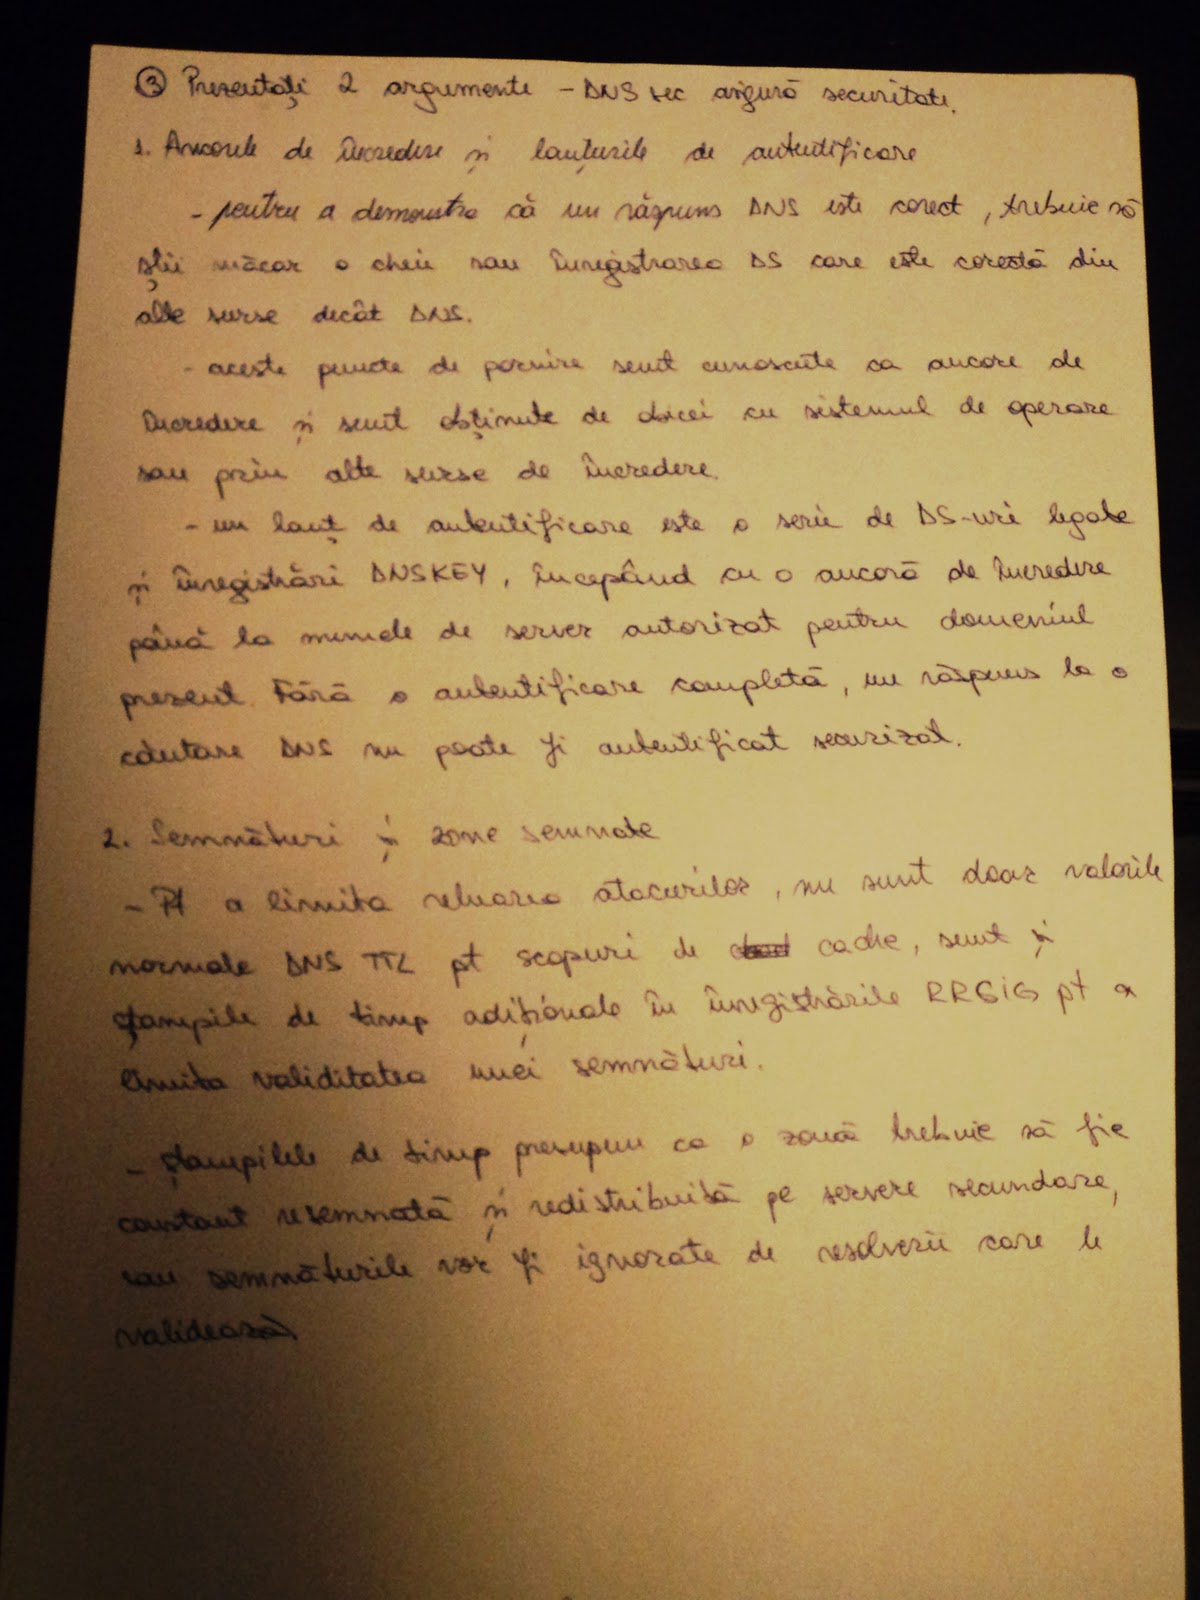 ③ Prezentați 2 argumente – DNS sec asigură securitate.
1. Ancorele de încredere și lanțurile de autentificare
- pentru a demonstra că un răspuns DNS este corect, trebuie să
știi măcar o cheie sau înregistrarea DS care este corectă din
alte surse decât DNS.
- aceste puncte de pornire sunt cunoscute ca ancore de
încredere și sunt obținute de obicei cu sistemul de operare
sau prin alte surse de încredere.
- un lanț de autentificare este o serie de DS-uri legate
și înregistrări DNSKEY, începând cu o ancoră de încredere
până la numele de server autorizat pentru domeniul
prezent. Fără o autentificare completă, un răspuns la o
căutare DNS nu poate fi autentificat securizat.
2. Semnături și zone semnate
- Pt a limita reluarea atacurilor, nu sunt doar valorile
normale DNS TTL pt scopuri de cache, sunt și
ștampile de timp adiționale în înregistrările RRSIG pt a
limita validitatea unei semnături.
- ștampilele de timp presupun ca o zonă trebuie să fie
constant resemnată și redistribuită pe servere secundare,
sau semnăturile vor fi ignorate de resolverii care le
validează.